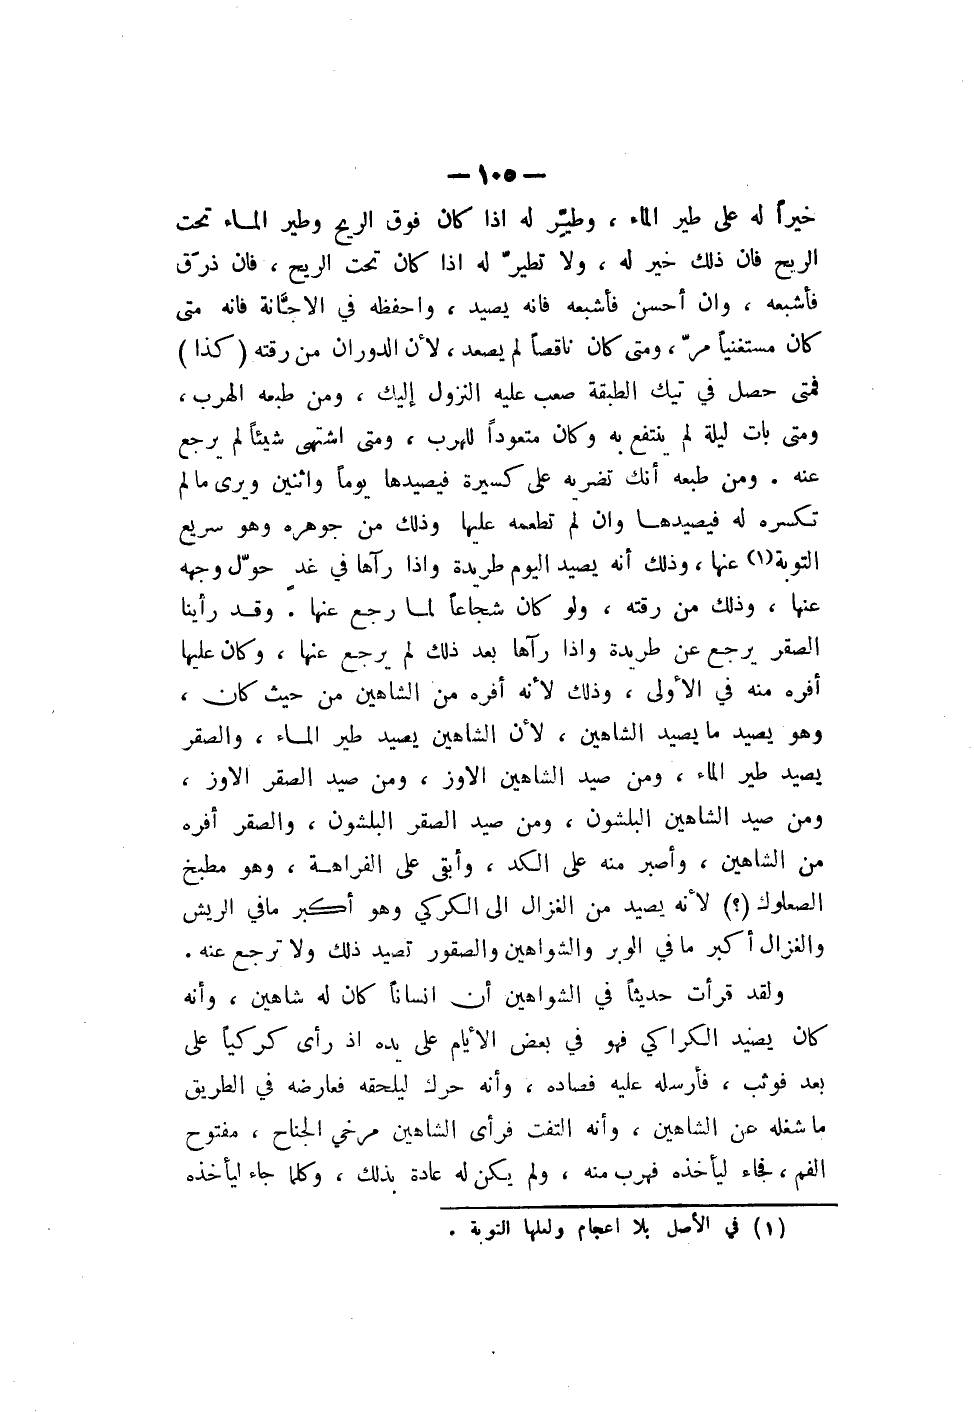 — ١٠٥ —
خيراً له على طير الماء ، وطيّر له اذا كان فوق الريح وطير المـاء تحت
الريح فان ذلك خير له ، ولا تطيرّ له اذا كان تحت الريح ، فان ذرّق
فأشبعه ، وان أحسن فأشبعه فانه يصيد ، واحفظه في الاجّانة فانه متى
كان مستغنياً مرّ ، ومتى كان ناقصاً لم يصعد ، لأن الدوران من رقته (كذا)
فمتى حصل في تيك الطبقة صعب عليه النزول إليك ، ومن طبعه الهرب ،
ومتى بات ليلة لم ينتفع به وكان متعوداً للهرب ، ومتى اشتهى شيئاً لم يرجع
عنه . ومن طبعه أنك تضربه على كسيرة فيصيدها يوماً واثنين ويرى مالم
تكسره له فيصيدهـا وان لم تطعمه عليها وذلك من جوهره وهو سريع
التوبة(١) عنها ، وذلك أنه يصيد اليوم طريدة واذا رآها في غد حوّل وجهه
عنها ، وذلك من رقته ، ولو كان شجاعاً لمـا رجع عنها . وقـد رأينا
الصقر يرجع عن طريدة واذا رآها بعد ذلك لم يرجع عنها ، وكان عليها
أفره منه في الأولى ، وذلك لأنه أفره من الشاهين من حيث كان ،
وهو يصيد مايصيد الشاهين ، لأن الشاهين يصيد طير المـاء ، والصقر
يصيد طير الماء ، ومن صيد الشاهين الاوز ، ومن صيد الصقر الاوز ،
ومن صيد الشاهين البلشون ، ومن صيد الصقر البلشون ، والصقر أفره
من الشاهين ، وأصبر منه على الكد ، وأبقى على الفراهـة ، وهو مطبخ
الصعلوك (؟) لأنه يصيد من الغزال الى الكركي وهو أكبر مافي الريش
والغزال أكبر ما في الوبر والشواهين والصقور تصيد ذلك ولا ترجع عنه .
ولقد قرأت حديثاً في الشواهين أن انساناً كان له شاهين ، وأنه
كان يصيد الكراكي فهو في بعض الأيام على يده اذ رأى كركياً على
بعد فوثب ، فأرسله عليه فصاده ، وأنه حرك ليلحقه فعارضه في الطريق
ماشغله عن الشاهين ، وأنه التفت فرأى الشاهين مرخي الجناح ، مفتوح
الفم ، فجاء ليأخذه فهرب منه ، ولم يكن له عادة بذلك ، وكلما جاء ليأخذه
(١) في الأصل بلا اعجام ولعلها التوبة .